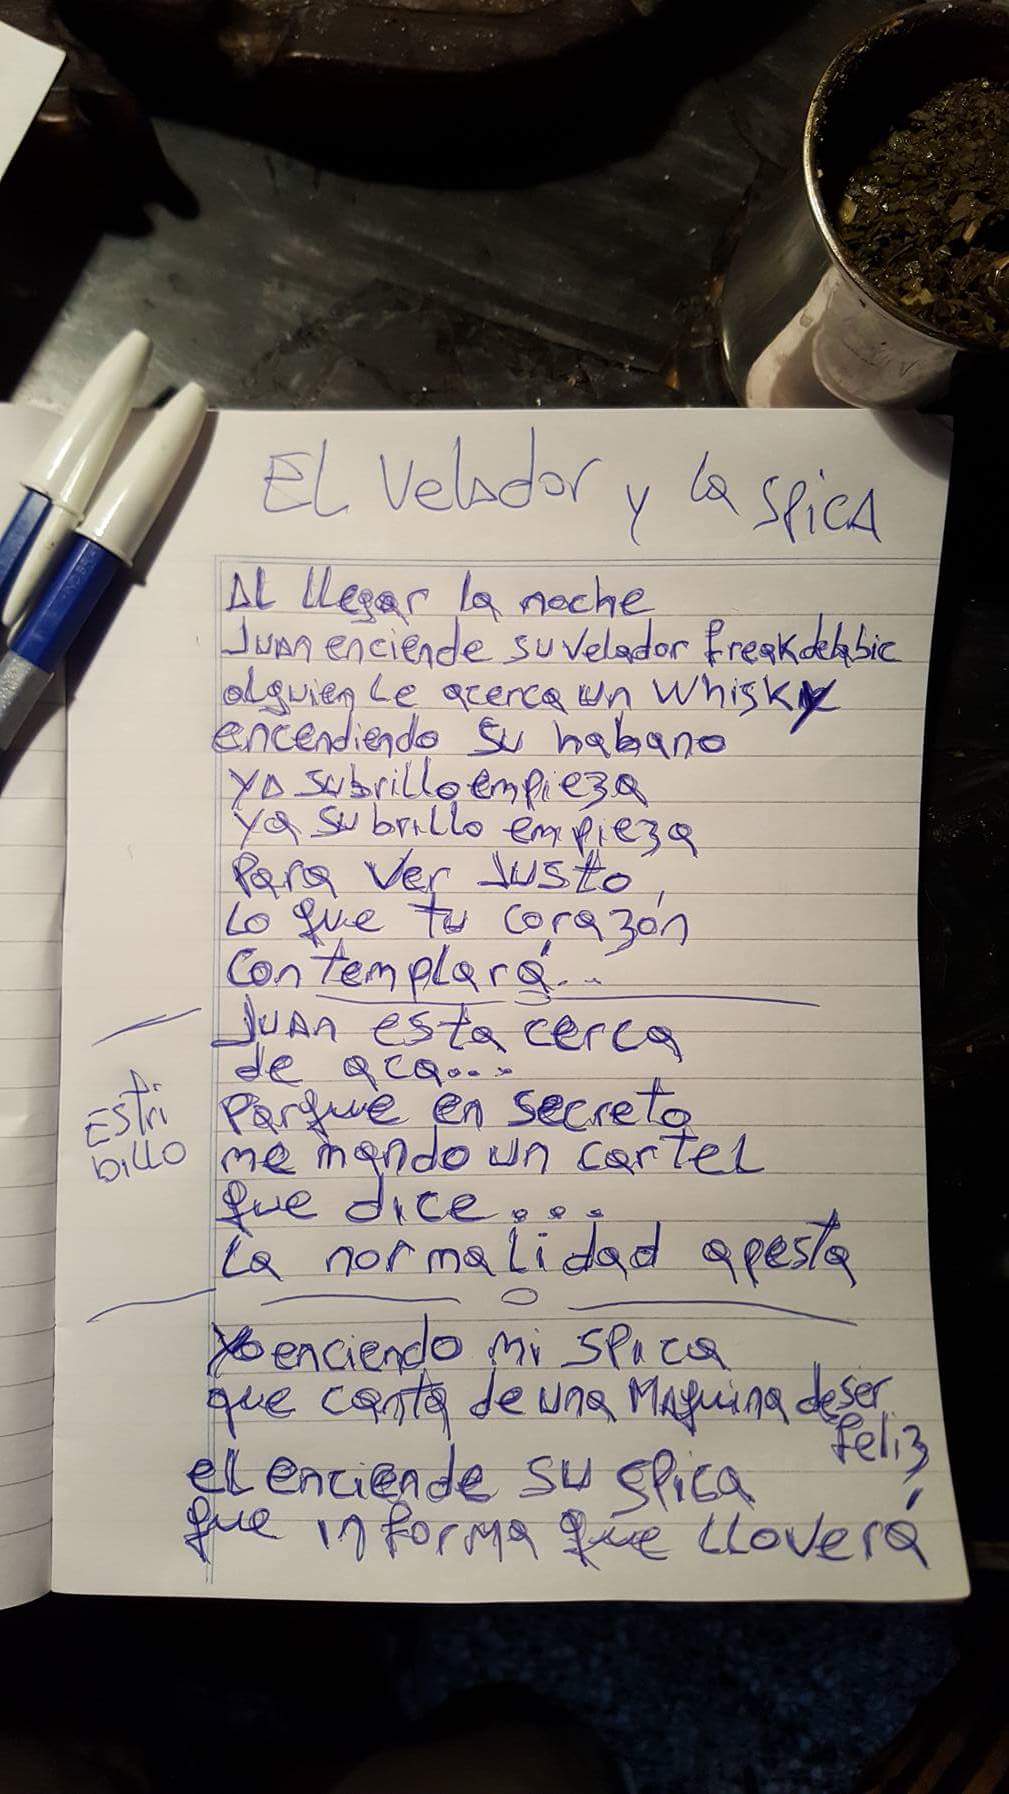 EL Velador y la SPICA
AL llegar la noche
Juan enciende su velador freakdelabic
alguien Le acerca un Whisky
encendiendo su habano
ya su brillo empieza
ya su brillo empieza
Para ver Justo,
Lo que tu corazón
Contemplará...
Juan esta cerca
de aca...
Estri
billo
Porque en secreto
me mando un cartel
que dice...
La normalidad apesta
Yo enciendo mi Spica
que canta de una Maquina de ser
feliz
el enciende su spica
que informa que lloverá